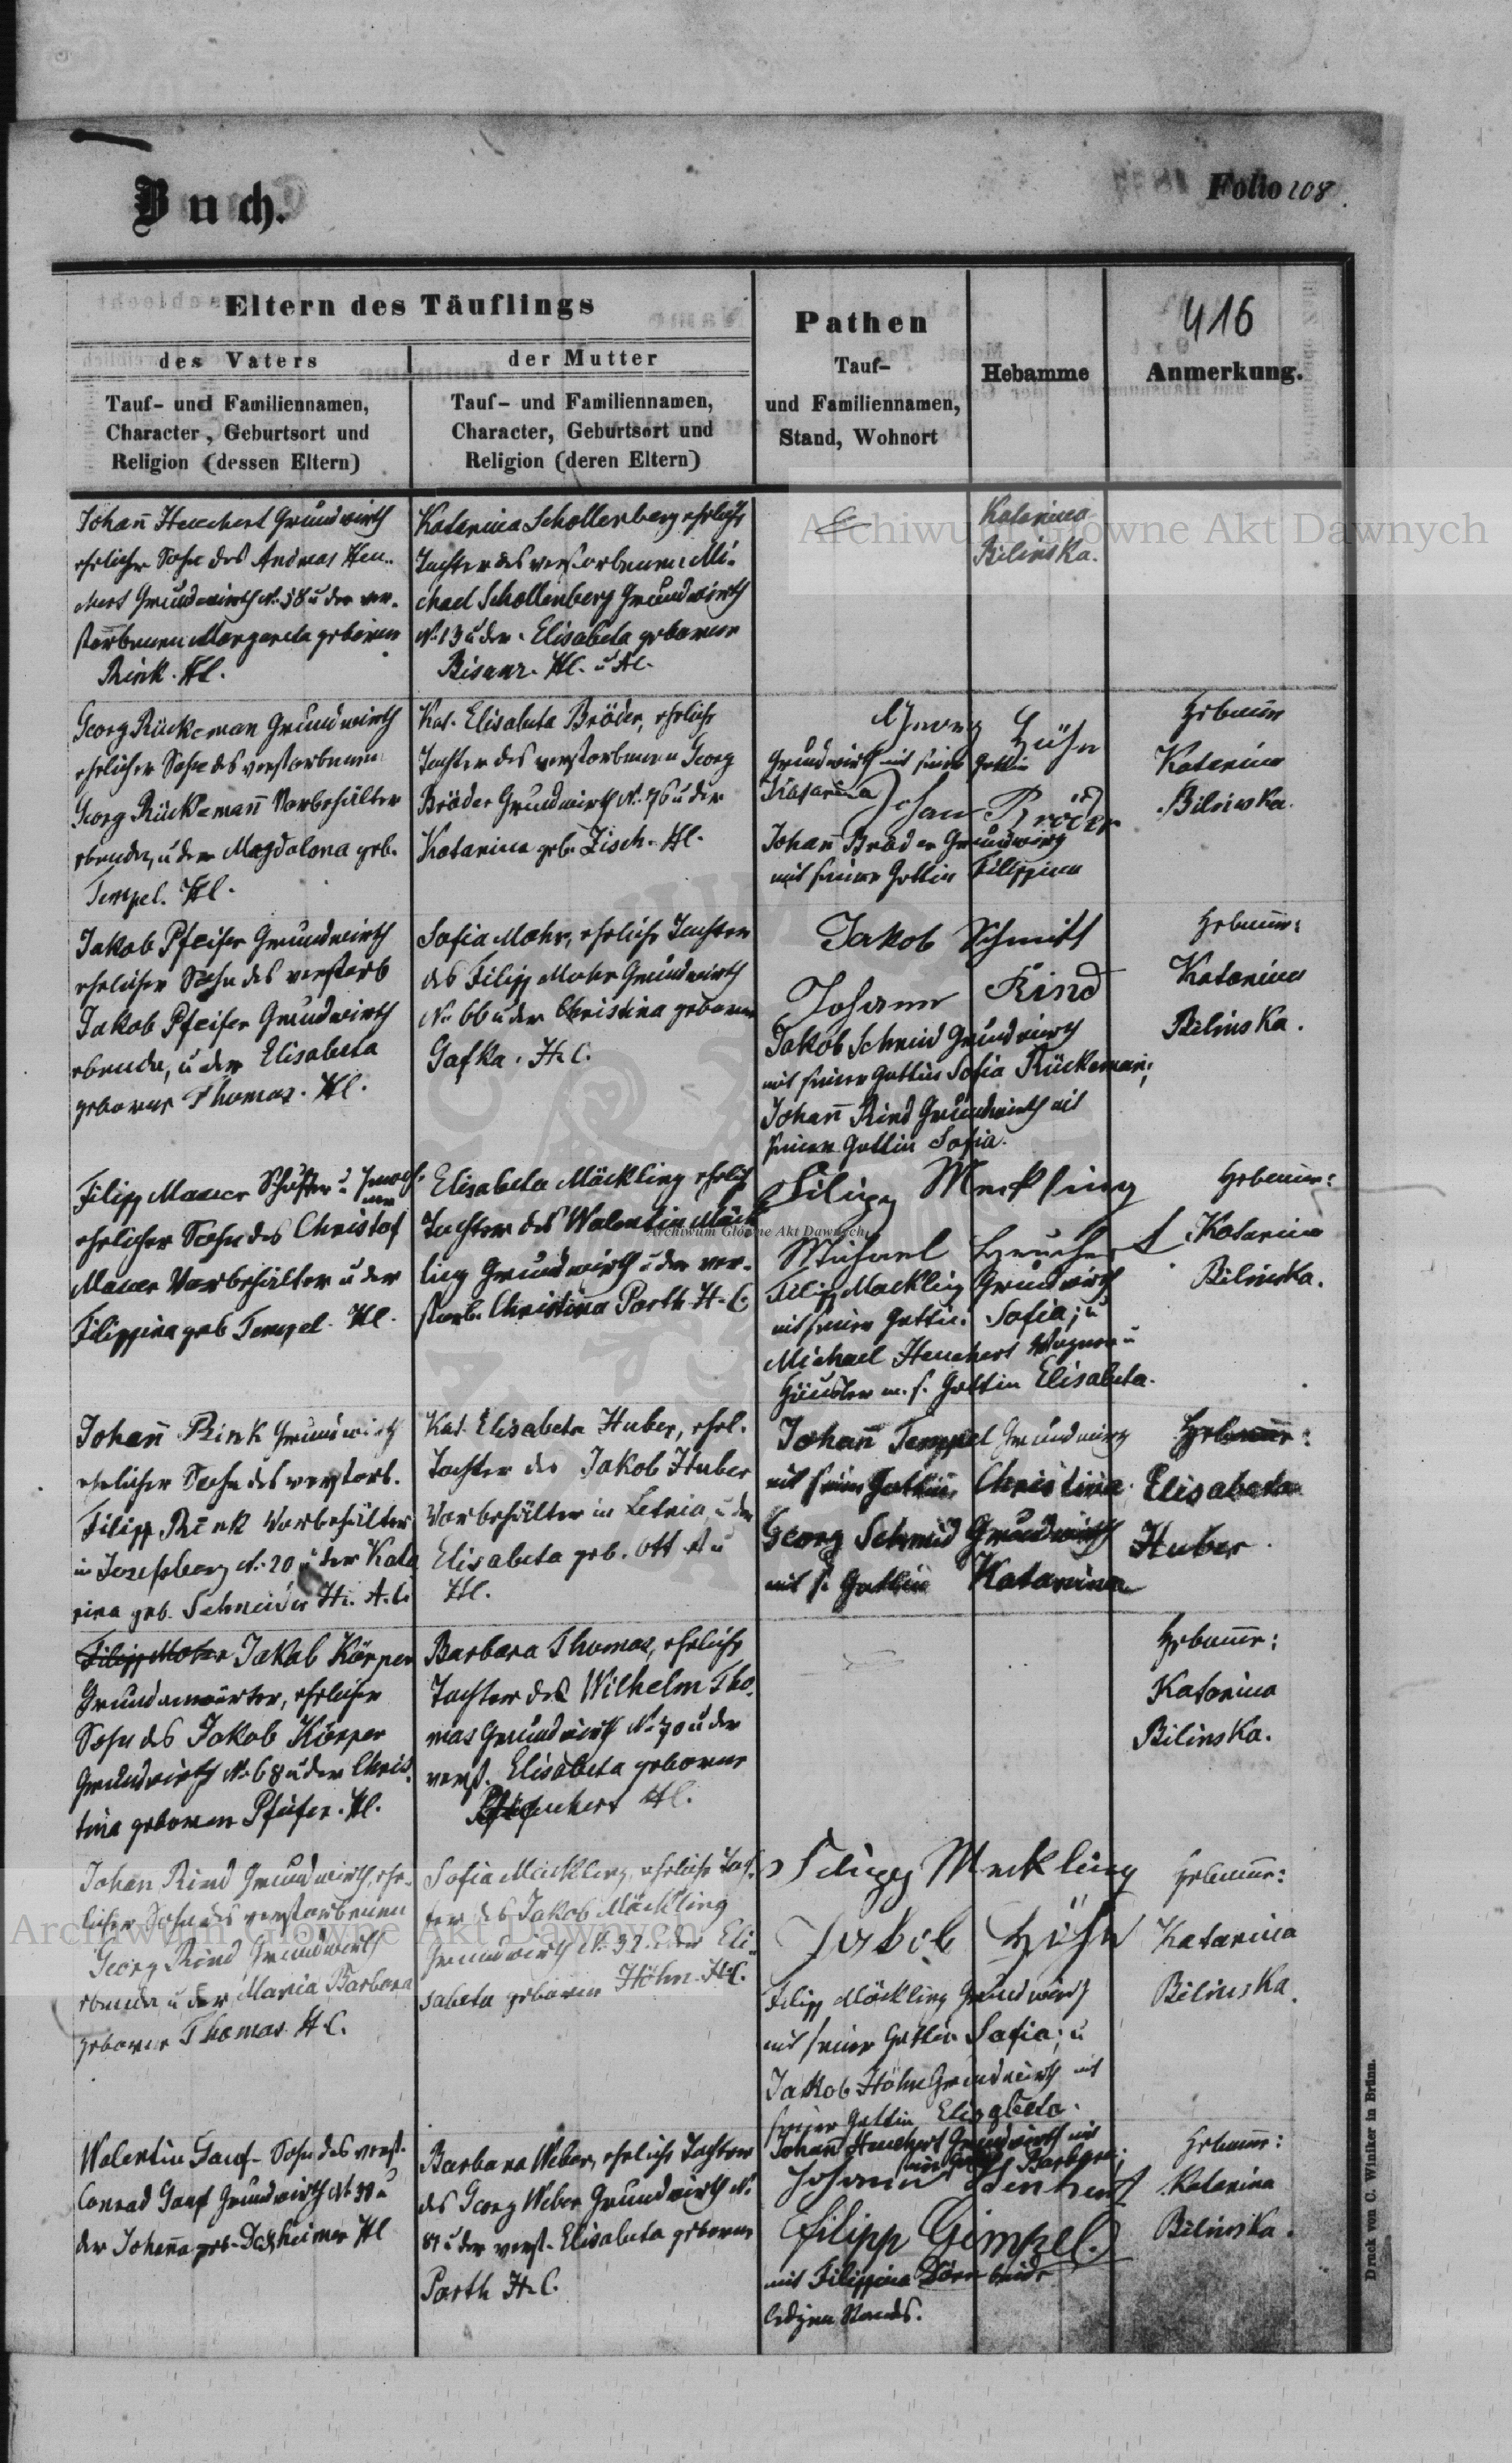 Buch.
Folio 208
Eltern des Täuflings
des Vaters
Tauf- und Familiennamen,
Character, Geburtsort und
Religion (dessen Eltern)
der Mutter
Tauf- und Familiennamen,
Character, Geburtsort und
Religion (deren Eltern)
Pathen
Tauf-
und Familiennamen,
Stand, Wohnort
Hebamme
416
Anmerkung.
Johann Heuchert Grundwirth
ehelicher Sohn des Andreas Heu-
chert Grundwirth No. 58 u der ver-
storbenen Margareta geborene
Rink. H.C.
Katarina Schollenberg eheliche
Tochter des verstorbenen Mi-
chael Schollenberg Grundwirth
No. 13 u der Elisabeta geborene
Bisanz. H.C. u A.C.
Katarina
Bilinska.
Georg Rückeman Grundwirth
ehelicher Sohn des verstorbenen
Georg Rückemann Vorbehälter
ebenda, u der Magdalena geb.
Tempel. H.C.
Kat. Elisabeta Bröder, eheliche
Tochter des verstorbenen Georg
Bröder Grundwirth No. 76 u der
Katarina geb. Zisch. H.C.
Georg Höhn
Grundwirth mit seiner Gattin
Katarina
Johan Bröder
Johann Bröder Grundwirth
mit seiner Gattin Filippina
Hebamme
Katarina
Bilinska.
Jakob Pfeifer Grundwirth
ehelicher Sohn des verstorb
Jakob Pfeifer Grundwirth
ebenda, u der Elisabeta
geborene Thomas. H.C.
Sofia Mohr, eheliche Tochter
des Filipp Mohr Grundwirth
No. 66 u der Christina geborene
Gafka. H.C.
Jakob Schmitt
Johann Rind
Jakob Schmid Grundwirth
mit seiner Gattin Sofia Rückeman;
Johann Rind Grundwirth mit
seiner Gattin Sofia.
Hebamme:
Katarina
Bilinska.
Filipp Mauer Schuster u
ehelicher Sohn des Christof
Mauer Vorbehälter u der
Filippina geb Tempel. H.C.
Elisabeta Mäckling ehelich
Tochter des Valentin Mäck
ling Grundwirth u der ver-
storb. Christina Parth H.C.
Filipp Meckling
Michael Heuchert
Filipp Mäckling Grundwirth
mit seiner Gattin Sofia; u
Michael Heuchert Wagner u
Häusler m. s. Gattin Elisabeta.
Hebamme:
Katarina
Bilinska.
Johann Rink Grundwirth
ehelicher Sohn des verstorb.
Filipp Rink Vorbehälter
in Josefsberg No. 20 u der Kata
rina geb. Schneider H. A.C.
Kat. Elisabeta Huber, ehel.
Tochter des Jakob Huber
Vorbehälter in Letnia u der
Elisabeta geb. Ott A u
H.C.
Johann Tempel Grundwirth
mit seiner Gattin Christina
Georg Schmid Grundwirth
mit s. Gattin Katarina
Hebamme:
Elisabeta
Huber.
Filipp Mohr Jakob Körper
Grundanwärter, ehelicher
Sohn des Jakob Körper
Grundwirth No. 68 u der Chris
tina geborene Pfeifer. H.C.
Barbara Thomas, eheliche
Tochter des Wilhelm Tho
mas Grundwirth No. 70 u der
verst. Elisabeta geborene
Heuchert H.C.
Hebamme:
Katarina
Bilinska.
Johan Rind Grundwirth, ehe-
licher Sohn des verstorbenen
Georg Rind Grundwirth
ebenda u der Maria Barbara
geborene Thomas H.C.
Sofia Mäckling, eheliche Toch
ter des Jakob Mäckling
Grundwirth No. 32 u der Eli
sabeta geborene Höhn H.C.
Filipp Meckling
Jakob Höhn
Filipp Mäckling Grundwirth
mit seiner Gattin Sofia; u
Jakob Höhn Grundwirth mit
seiner Gattin Elisabeta.
Hebamme:
Katarina
Bilinska.
Valentin Ganf Sohn des verst.
Conrad Ganf Grundwirth No 38 u
der Johanna geb. Dasheimer H.C.
Barbara Weber, eheliche Tochter
des Georg Weber Grundwirth No.
81 u der verst. Elisabeta geborene
Parth H.C.
Johann Heuchert Grundwirth mit
seiner Gattin Barbara;
Johann Heuchert
Filipp Gimpel
mit Filippina Dörr beide
ledigen Stands.
Hebamme:
Katarina
Bilinska.
Druck von C. Winiker in Brünn.
Archiwum Główne Akt Dawnych
Archiwum Główne Akt Dawnych
Archiwum Główne Akt Dawnych